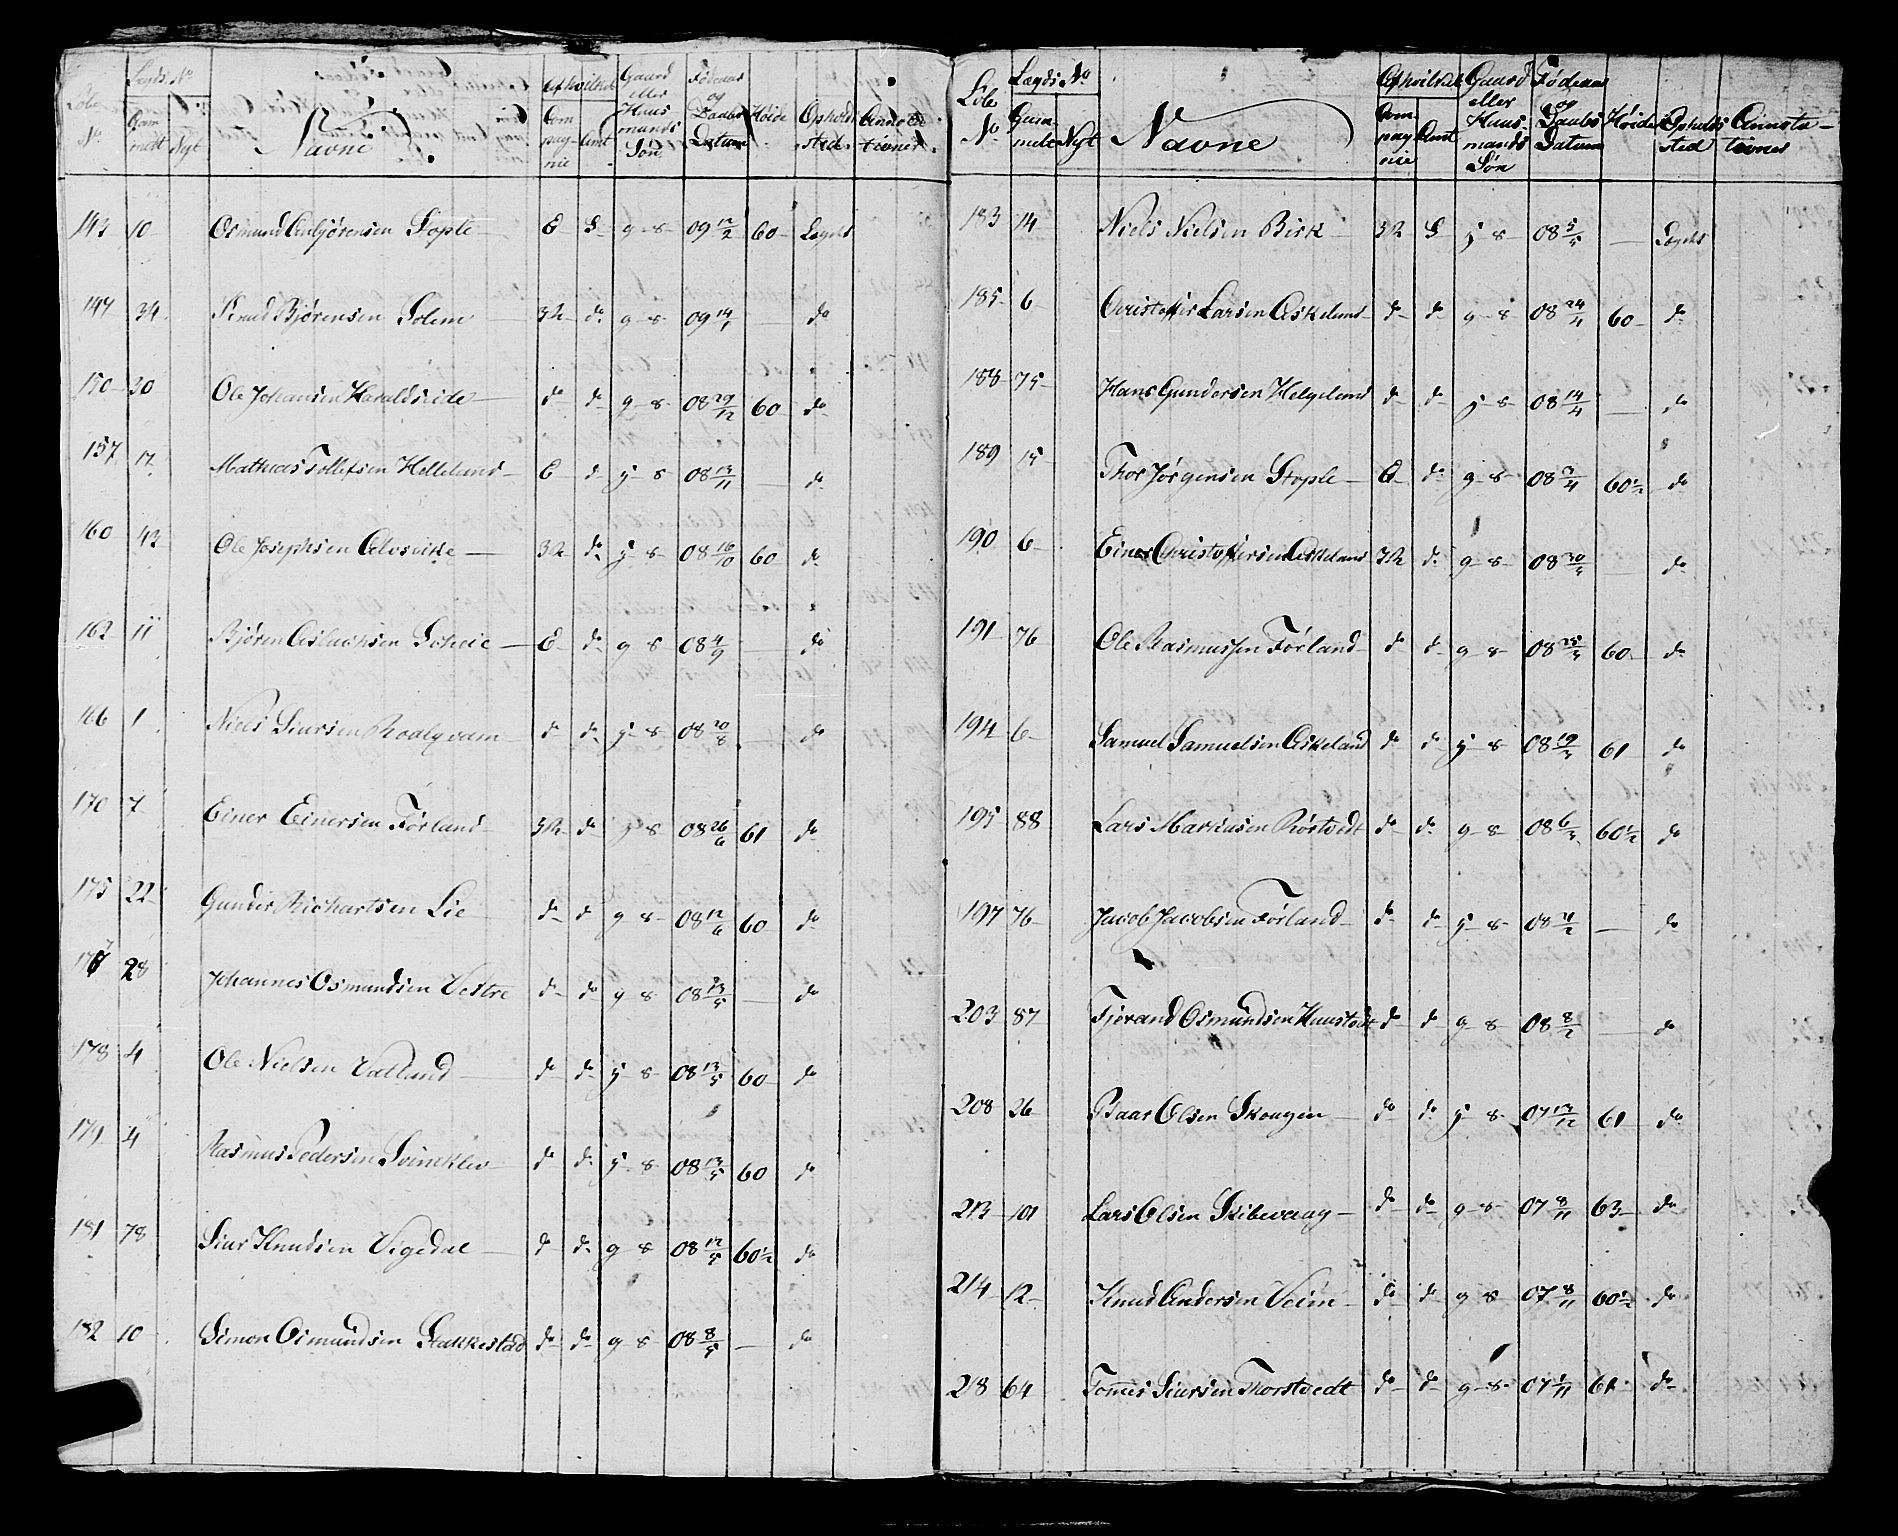 Løbe No | Lægds No Gammelt Nyt | Navne | Af hvilket Compagnie Amt | Gaard eller Huusmands Søn | Fødeaar og Daabs Datum | Høide | Opholdsted | Annotationer
143 10 Osmund Asbjørensen Stople E S g s 09 12/2 60 Lægdet
147 34 Knud Bjørensen Solem 3R do g s 09 14/1 — do
150 20 Ole Johansen Haraldseide do do g s 08 29/12 60 do
157 17 Mathias Tollefsen Helleland E do j s 08 13/11 — do
160 43 Ole Josephsen Alvsvike 3R do j s 08 16/10 60 do
162 11 Bjøren Aslachsen Scheie E do g s 08 4/9 — do
166 1 Niels Siursen Roalqvam do do j s 08 20/8 — do
170 7 Einer Einersen Førland 3R do j s 08 26/6 61 do
175 22 Gunder Richartsen Lie do do g s 08 12/6 60 do
177 28 Johannes Osmundsen Vestre do do g s 08 13/5 — do
178 4 Ole Nielsen Valland do do j s 08 13/5 60 do
179 4 Rasmus Pedersen Svineklev do do j s 08 13/5 60 do
181 78 Siur Knudsen Vigedal do do g s 08 12/5 60½ do
182 10 Simon Osmundsen Stakkestad do do g s 08 8/5 — do
Løbe No | Lægds No Gammelt Nyt | Navne | Af hvilket Compagnie Amt | Gaard eller Huusmands Søn | Fødeaar og Daabs Datum | Høide | Opholdsted | Annotationer
183 14 Niels Nielsen Birk 3R S j s 08 5/5 — Lægdet
185 6 Christoffer Larsen Askeland do do g s 08 24/4 60 do
188 75 Hans Gundersen Helgeland do do j s 08 14/4 — do
189 15 Thor Jørgensen Stople E do g s 08 3/4 60½ do
190 6 Einer Christoffersen Askeland 3R do g s 08 30/3 — do
191 76 Ole Rasmussen Førland do do g s 08 25/3 60 do
194 6 Samuel Samuelsen Askeland do do j s 08 19/3 61 do
195 88 Lars Mariusen Røstvedt do do g s 08 6/3 60½ do
197 76 Jacob Jacobsen Førland do do j s 08 11/2 — do
203 87 Tjerand Osmundsen Huustvedt do do g s 08 8/2 — do
208 26 Baar Olsen Skougen do do j s 07 13/12 61 do
213 101 Lars Olsen Skibevaag do do g s 07 8/11 63 do
214 12 Knud Andersen Veim do do g s 07 8/11 60½ do
218 64 Tommes Siursen Thorstvedt do do g s 07 1/11 61 do